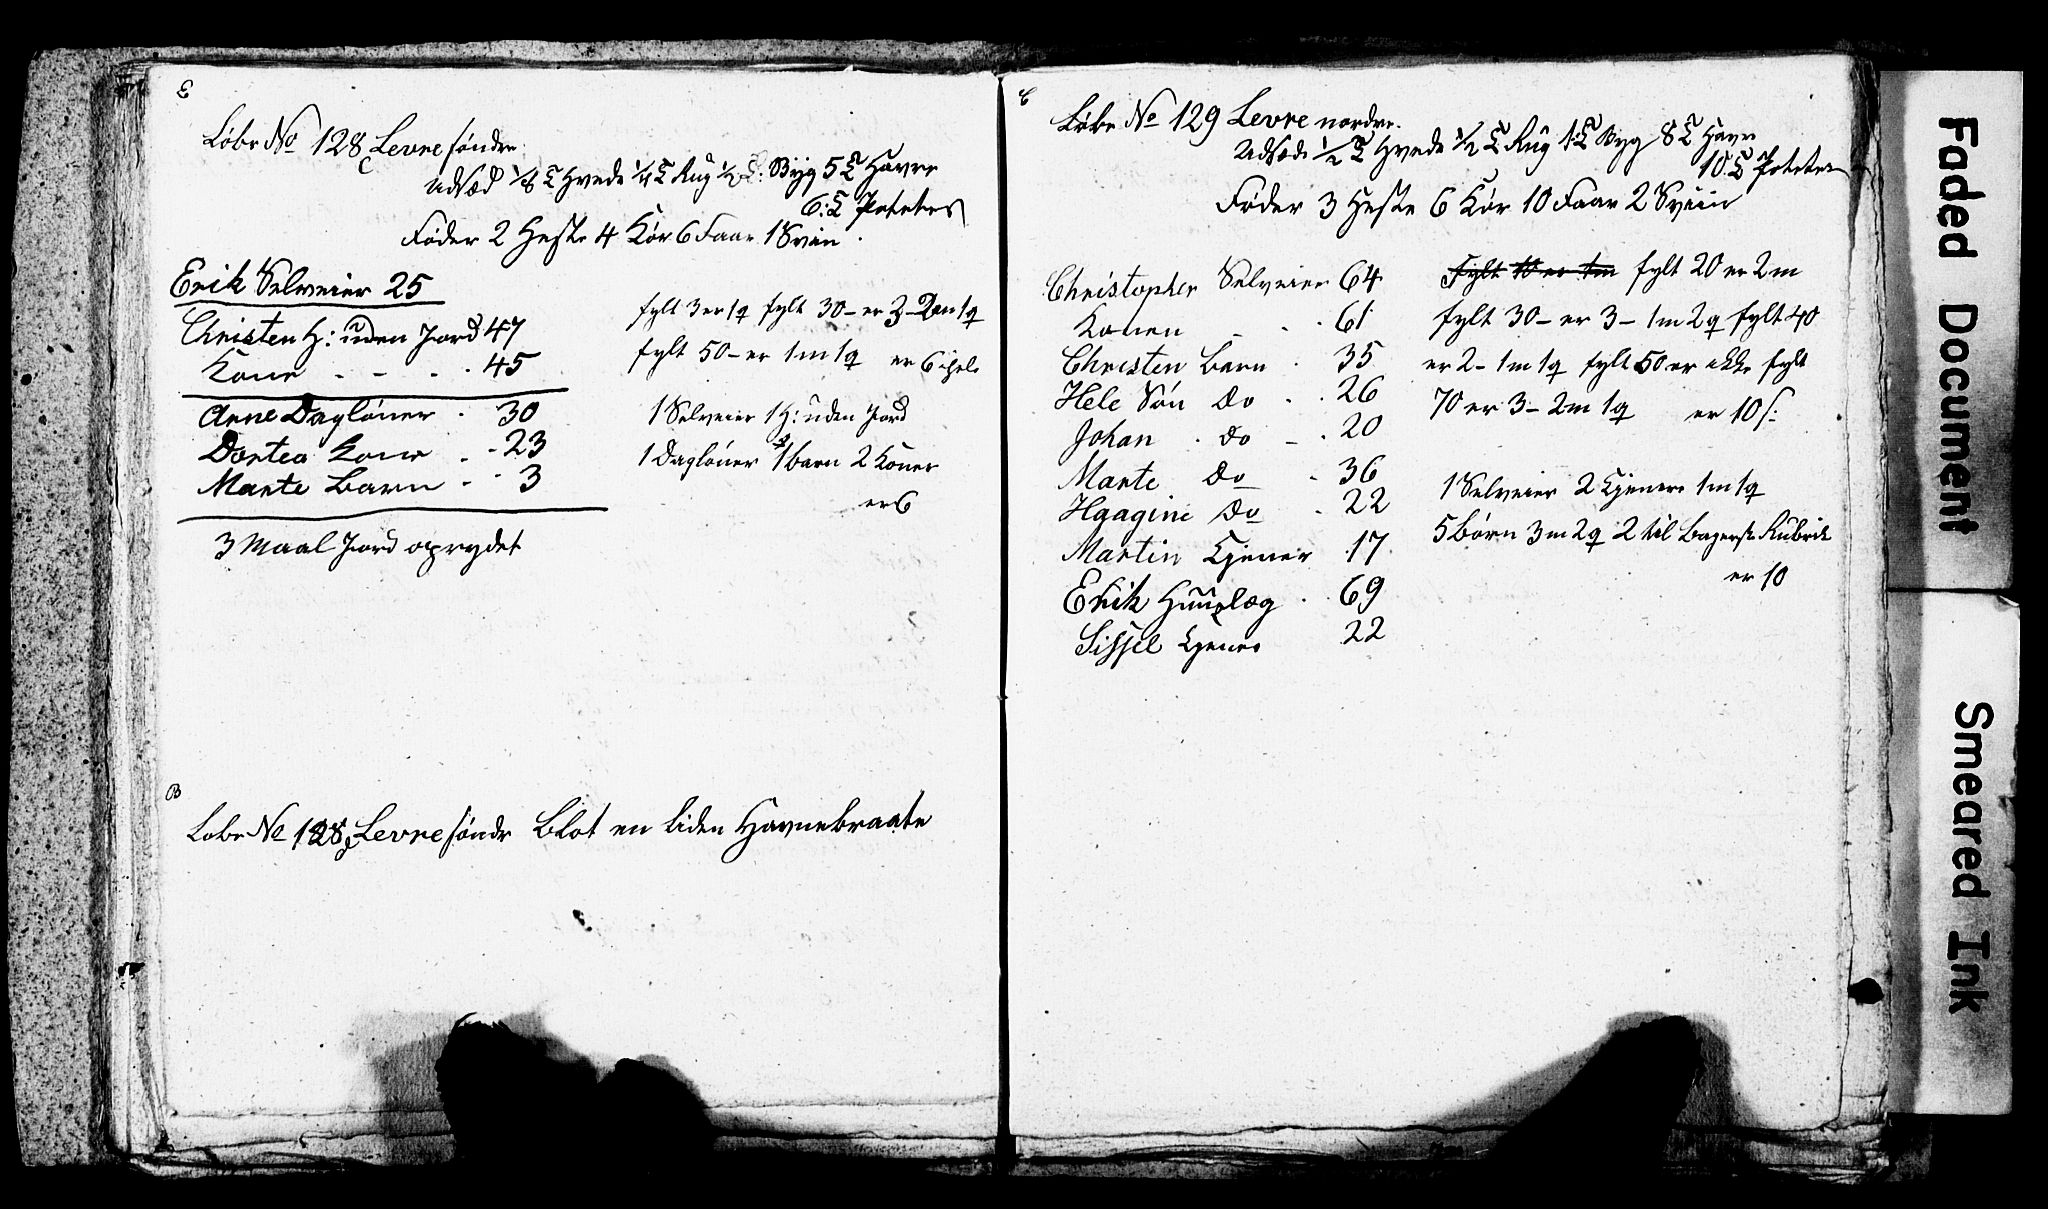 E
Løbe No 128 Levre søndre
c
Udsæd 1/8 T Hvede 1/4 T Rug 1/2 T: Byg 5 T Havre
6: T Poteter
Føder 2 Heste 4 Kör 6 Faar 1 Sviin
Erik Selveier 25
Christen H: uden Jord 47
Kone - - - 45
Anne Daglöner . 30
Dortea Kone . - 23
Marte Barn - - 3
3 Maal Jord oprydet
fylt 3 er 1 q fylt 30 - er 3 - 2 m 1 q
fylt 50 - er 1 m 1 q er 6 i hele
1 Selveier 1 H: uden Jord
1 Daglöner 1 barn 2 Koner
er 6
B
Løbe No 128 Levre søndr Blot en liden Havnebraate
E
Løbe No 129 Levre nordre.
Udsæd 1/2 T Hvede 1/2 T Rug 1 T Byg 8 T Havre
10 T Poteter
Føder 3 Heste 6 Kör 10 Faar 2 Sviin
Christopher Selveier 64
Konen - . . 61
Christen Barn . 35
Hele Sön do . . 26
Johan . do - . 20
Marte do . 36
Haagine do . 22
Martin Tjener 17
Erik Huuslæg . 69
Sissel Tjener 22
fylt 10 er 1 m fylt 20 er 2 m
fylt 30 - er 3 - 1 m 2 q fylt 40
er 2 - 1 m 1 q fylt 50 er ikke fylt
70 er 3 - 2 m 1 q er 10 s:
1 Selveier 2 Tjenere 1 m 1 q
5 börn 3 m 2 q 2 til bagerste Rubrik
er 10
Faded Document
Smeared Ink